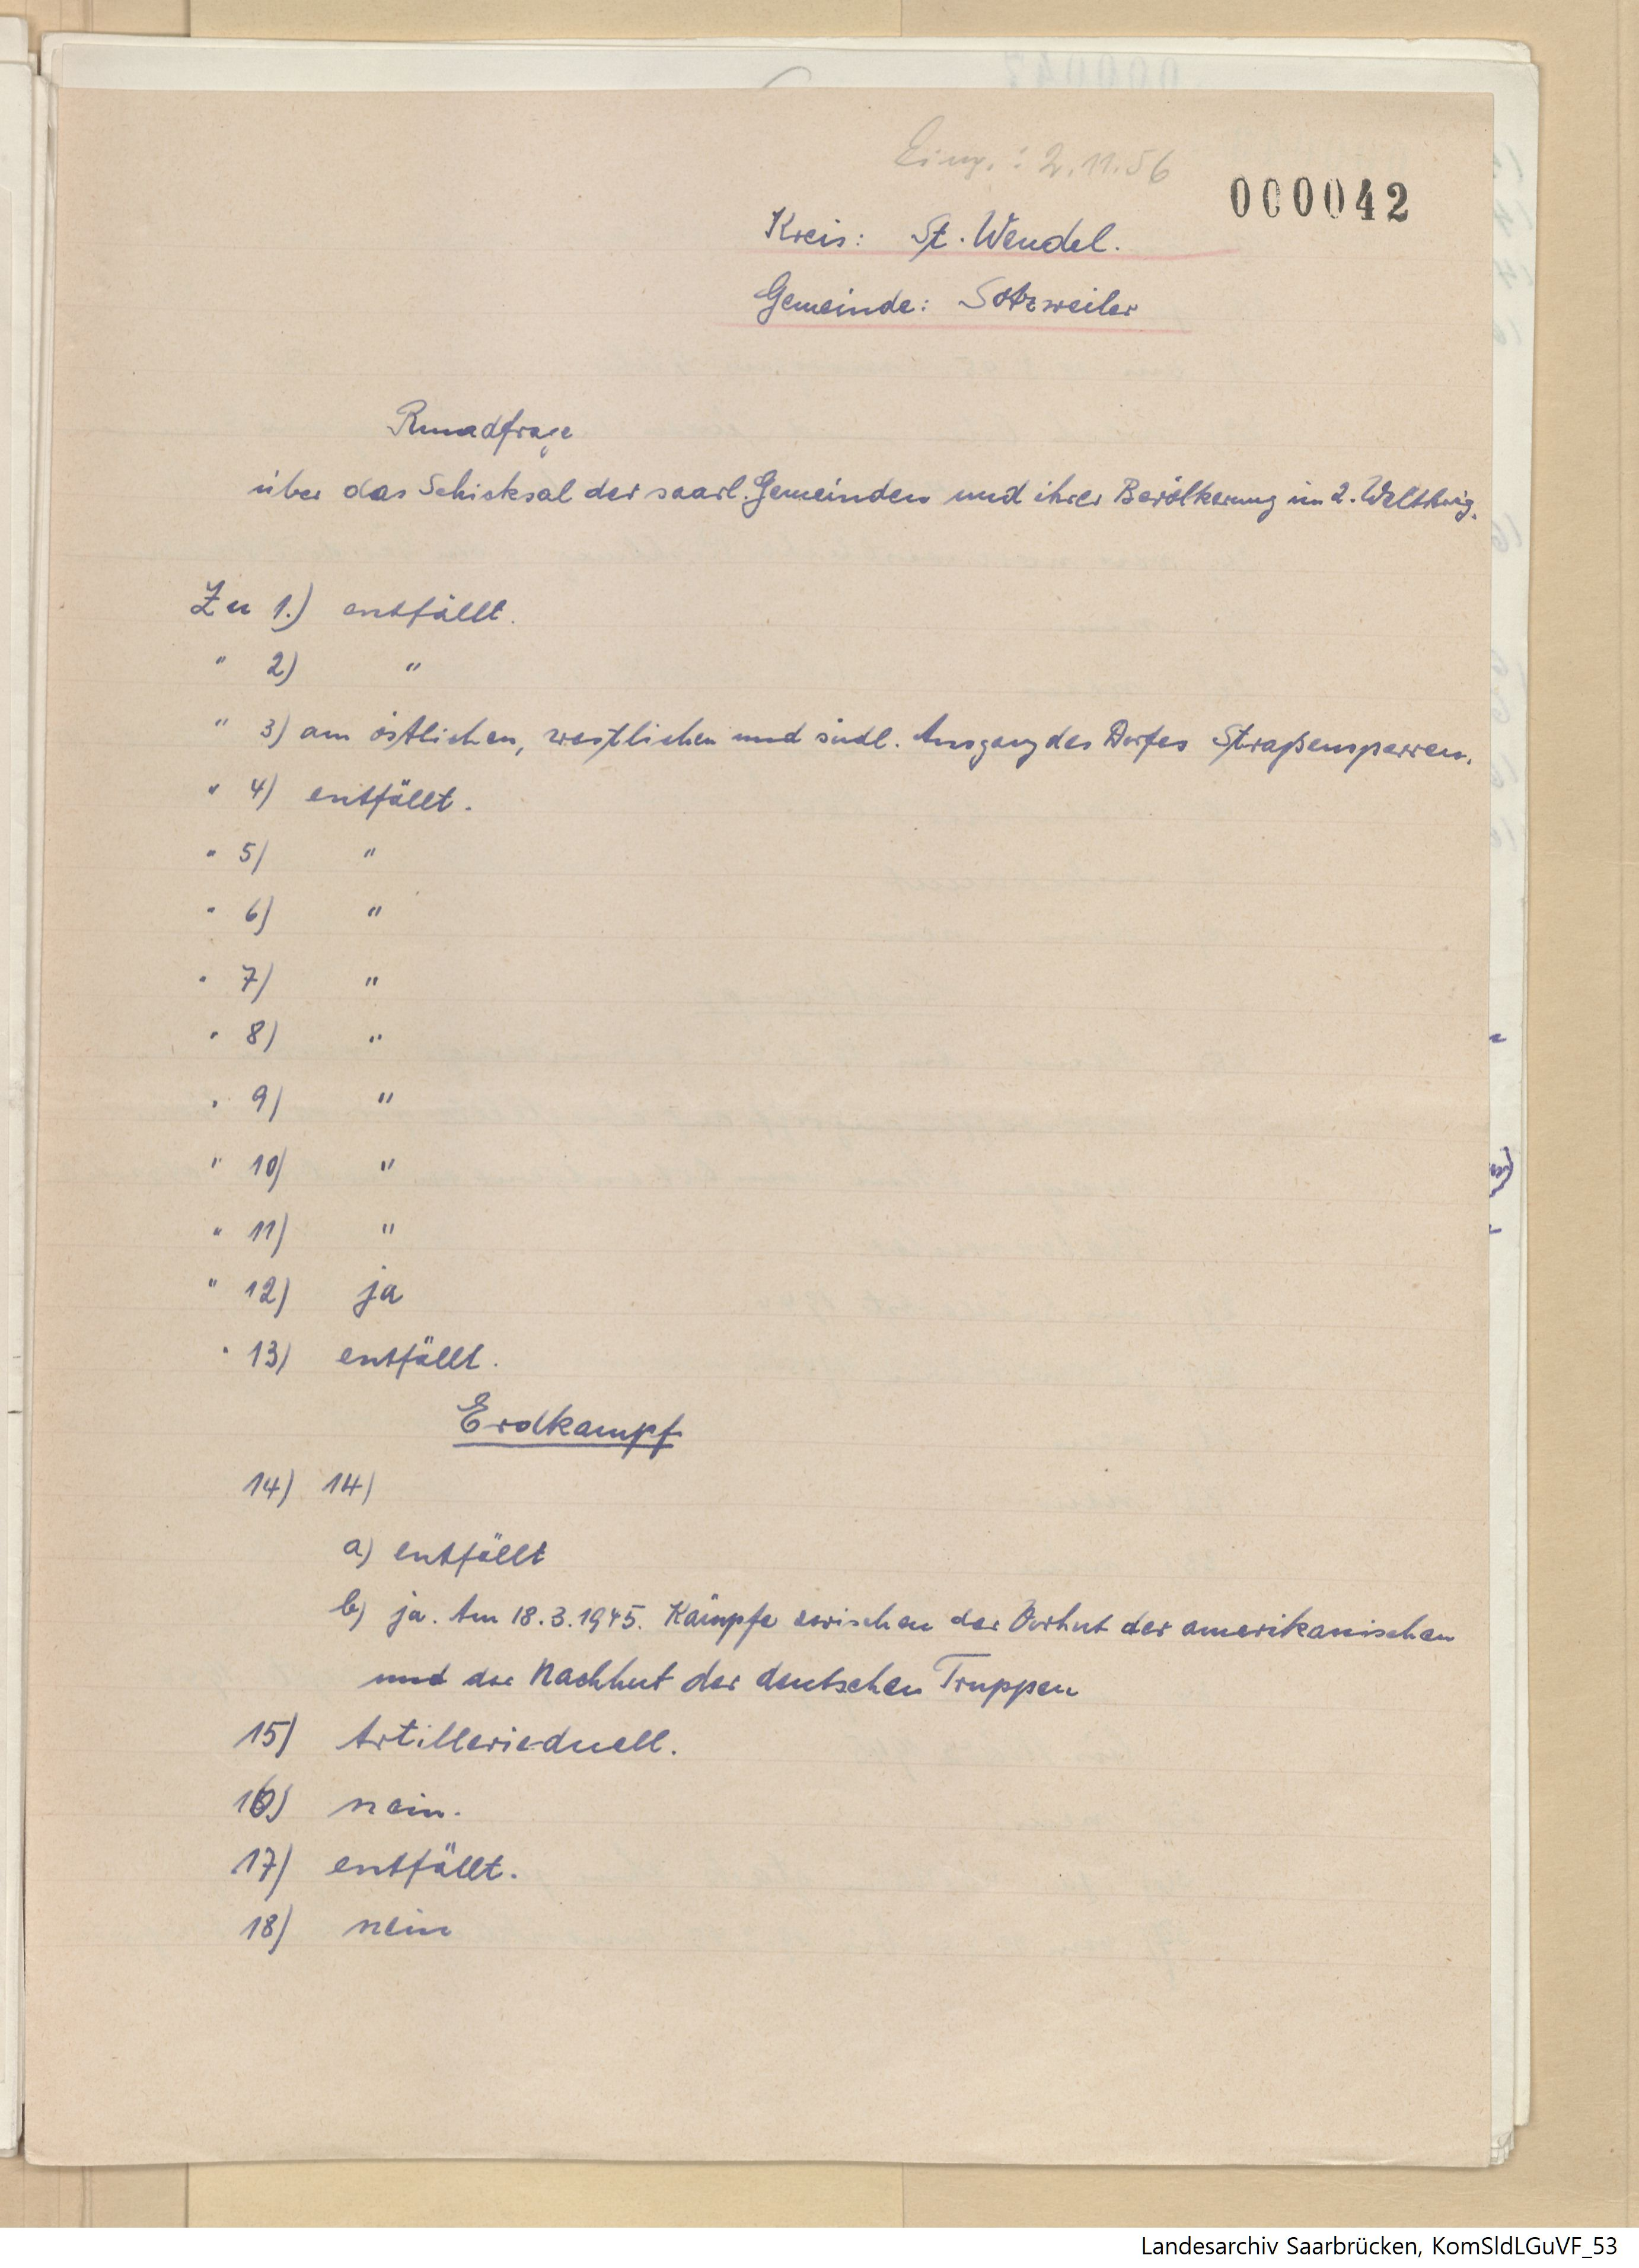 Eing.: 2.11.56
000042
Kreis: St. Wendel.
Gemeinde: Sotzweiler
Rundfrage
über das Schicksal der saarl. Gemeinden und ihrer Bevölkerung im 2. Weltkrieg.
Zu 1.) entfällt.
" 2) "
" 3) am östlichen, westlichen und südl. Ausgang des Dorfes Straßensperren.
" 4) entfällt.
" 5) "
" 6) "
" 7) "
" 8) "
" 9) "
" 10) "
" 11) "
" 12) ja
" 13) entfällt.
Erdkampf
14) 14)
a) entfällt
b) ja. Am 18.3.1945. Kämpfe zwischen der Vorhut der amerikanischen
und der Nachhut der deutschen Truppen
15) Artillerieduell.
16) nein.
17) entfällt.
18) nein
Landesarchiv Saarbrücken, KomSldLGuVF_53